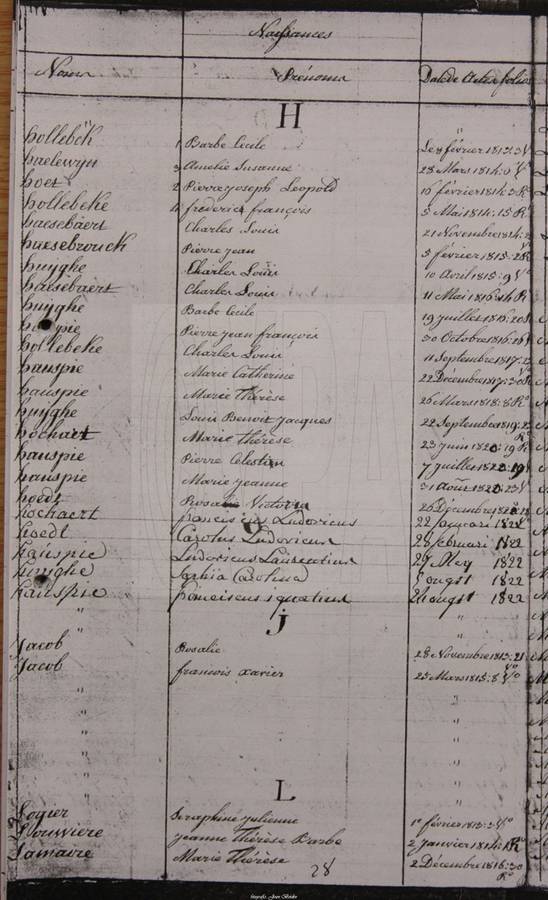 Naissances
Noms Prénoms Date de Actes folio
H
hollebek 1 Barbe Cecile 1er février 1813:3 Vo
haelewyn 3 Amelie Susanne 28 Mars 1814:6 Vo
hoet 2 Pierre Joseph Leopold 16 février 1814:3 Ro
hollebeke 4 frederick françois 5 Mai 1814:15 Ro
haesebaert Charles Louis 21 Novembre 1814:
haesebrouck Pierre Jean 5 février 1815:
huyghe Charles Louis 10 Avril 1815:9 Vo
haesebaert Charles Louis 11 Mai 1816:14 Ro
huyghe Barbe Cecile 19 juillet 1816:20
Pierre Jean françois 30 Octobre 1816:
hollebeke Charles Louis 11 Septembre 1817:
hauspie Marie Catherine 22 Décembre 1817:30
hauspie Marie Thérèse 26 Mars 1818:8 Ro
huyghe Louis Benoit Jacques 22 Septembre 1819:
hochaert Marie Thérèse 23 juin 1820:19 Ro
hauspie Pierre Celestin 7 juillet 1820:19
hauspie Marie Jeanne 31 Août 1820:23 Vo
hoedt Rosalie Victoria 26 Décembre
hochaert franciscus Ludovicus 22 januari 1822
hoedt Carolus Ludovicus 28 februari 1822
hauspie Ludovicus Laurentius 29 Mey 1822
huyghe Sophia Carolina ougst 1822
hauspie franciscus ignatius ougst 1822
J
Jacob Rosalie 28 Novembre 1813:21 Vo
Jacob francois xavier 25 Mars 1815:8 Vo
L
Logier Seraphine julienne 1er février 1813:3 Vo
Louwiere jeanne Thérèse Barbe 2 janvier 1814:1 Ro
Lamaire Marie Thérèse 2 Décembre 1816:30 Ro
28